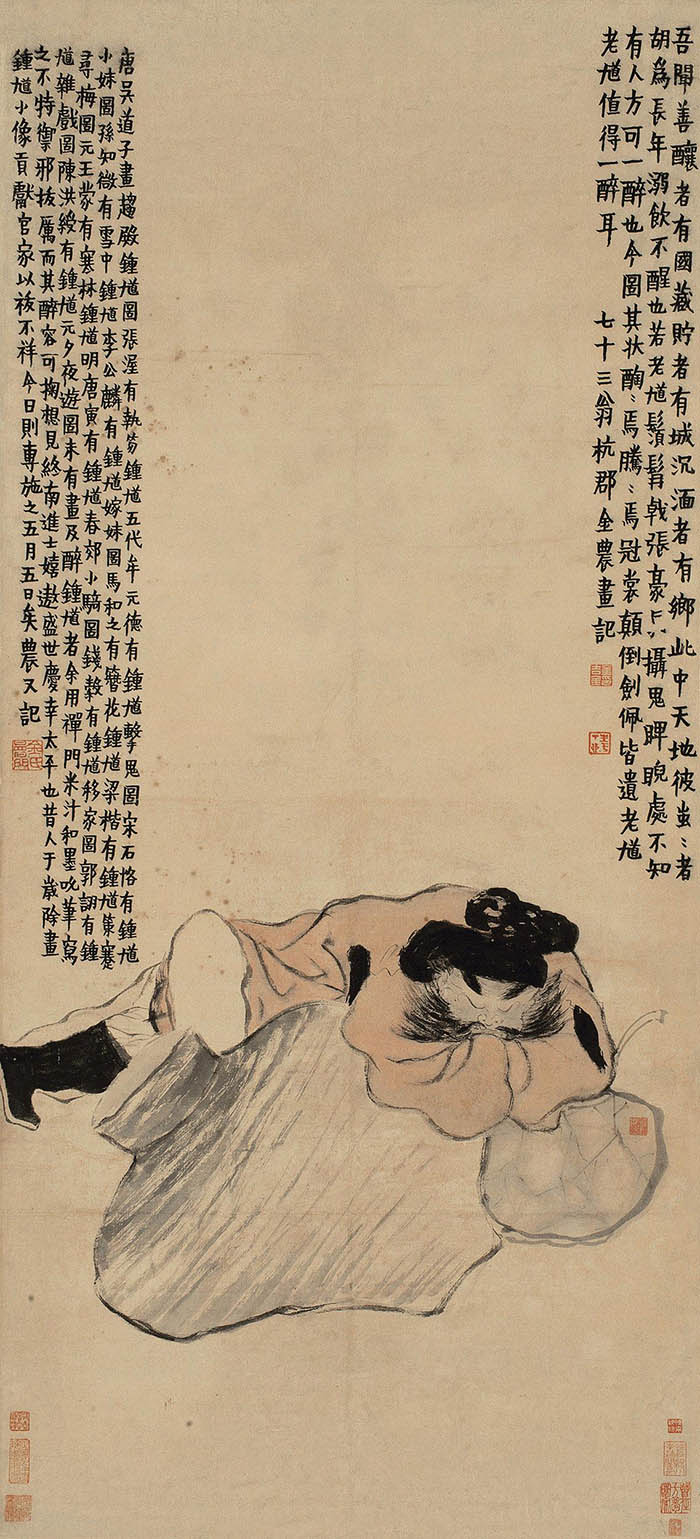 吾聞善釀者有國藏貯者有城沉湎者有鄉此中天地彼蚩〻者
胡爲長年溺飲不醒也若老馗鬚髯戟張豪攝鬼睥睨處不知
有人方可一醉也今圖其状醄〻焉騰〻焉冠裳顛倒劍佩皆遺老馗
老馗值得一醉耳 七十三翁杭郡金農畫記
唐吳道子畫趨殿鍾馗圖張渥有執笏鍾馗五代牟元德有鍾馗擊鬼圖宋石恪有鍾馗
小妹圖孫知微有雪中鍾馗李公麟有鍾馗嫁妹圖馬和之有簪花鍾馗梁楷有鍾馗策蹇
尋梅圖元王蒙有寒林鍾馗明唐寅有鍾馗春郊小騎圖錢穀有鍾馗移家圖郭詡有鍾
馗雜戲圖陳洪綬有鍾馗元夕夜遊圖未有畫及醉鍾馗者余用禪門米汁和墨吮筆寫
之不特禦邪抜厲而其醉容可掬想見終南進士嬉遨盛世慶幸太平也昔人于歲除畫
鍾馗小像貢獻官家以祓不祥今日則專施之五月五日矣農又記